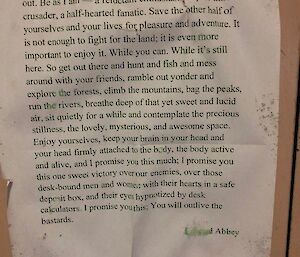 out. Be as I am — a reluctant
crusader, a half-hearted fanatic. Save the other half of
yourselves and your lives for pleasure and adventure. It
is not enough to fight for the land; it is even more
important to enjoy it. While you can. While it's still
here. So get out there and hunt and fish and mess
around with your friends, ramble out yonder and
explore the forests, climb the mountains, bag the peaks,
run the rivers, breathe deep of that yet sweet and lucid
air, sit quietly for a while and contemplate the precious
stillness, the lovely, mysterious, and awesome space.
Enjoy yourselves, keep your brain in your head and
your head firmly attached to the body, the body active
and alive, and I promise you this much; I promise you
this one sweet victory over our enemies, over those
desk-bound men and women with their hearts in a safe
deposit box, and their eyes hypnotized by desk
calculators. I promise you this; You will outlive the
bastards.
Edward Abbey